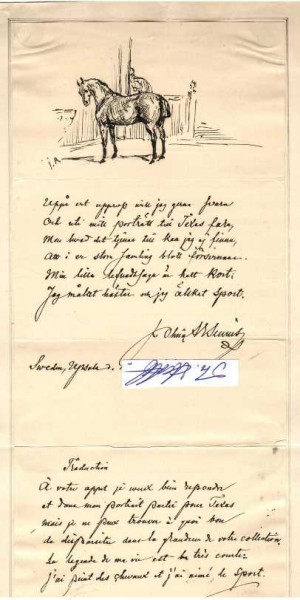 J.A
Uppå ert upprop will jag gerna svara
Och uti mitt porträtt till Texas fara,
Men hvad det tjenar till kan jag ej finna,
Att i er stora samling blott försvinna.
Min lilla lefnadssaga är helt kort,
Jag målat hästar och jag älskat Sport.
Sweden, Upsala d.
Traduction
À votre appel je veux bien repondre
et dans mon portrait partir pour Texas
Mais je ne peux trouver à quoi bon
de disparaitre dans la grandeur de votre collection
La legende de ma vie est très courte:
j'ai peint des chevaux et j'ai aimé le Sport.